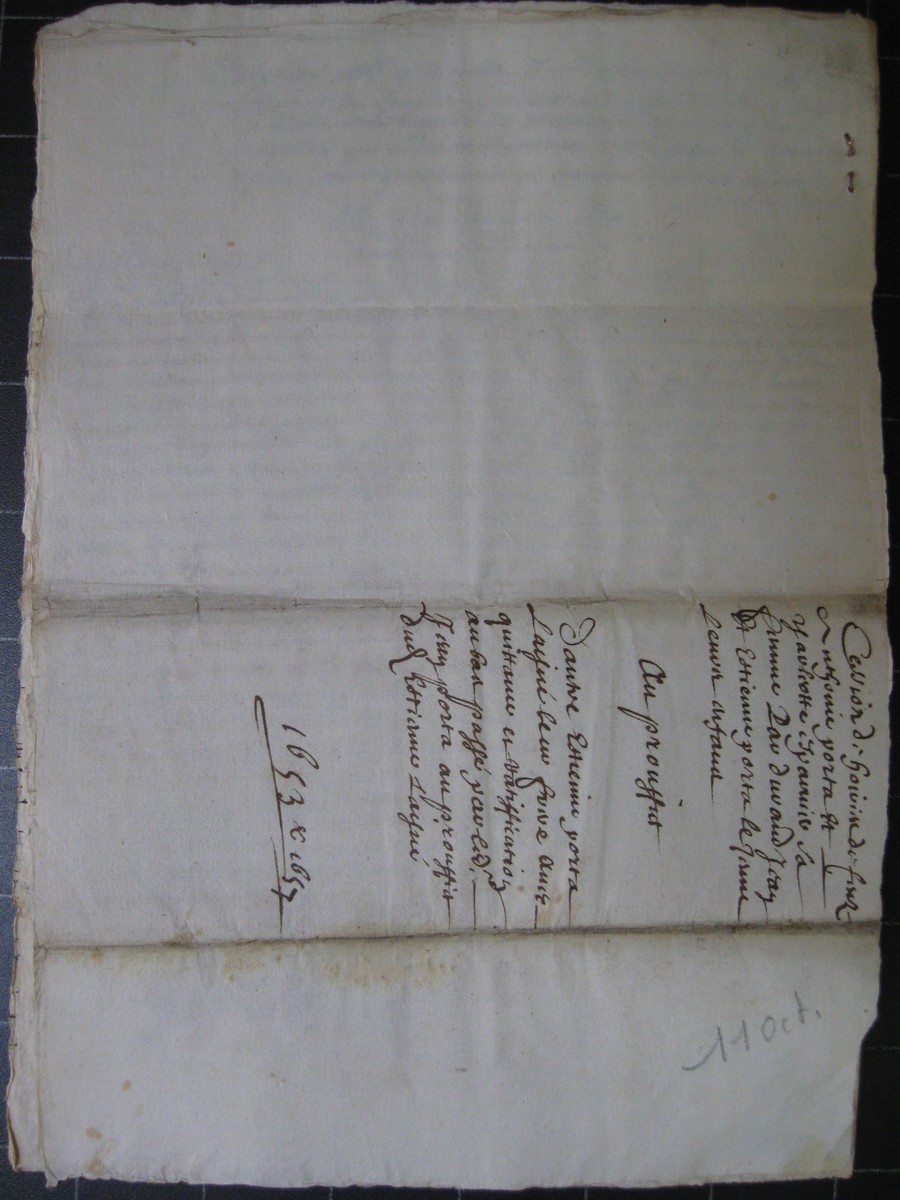 Cession d'hoirie de feuz
Anthoine porta et
femme Par durand Jean
et Estienne porta le Jeune
leurs enfans
Au prouffit
Dautre Estienne porta
Laisné leur frere avec
quittance et rattiffication
au bas passé par led.
Jean porta au prouffit
dud Estienne Laisné
1653 x 1657
11 Oct.